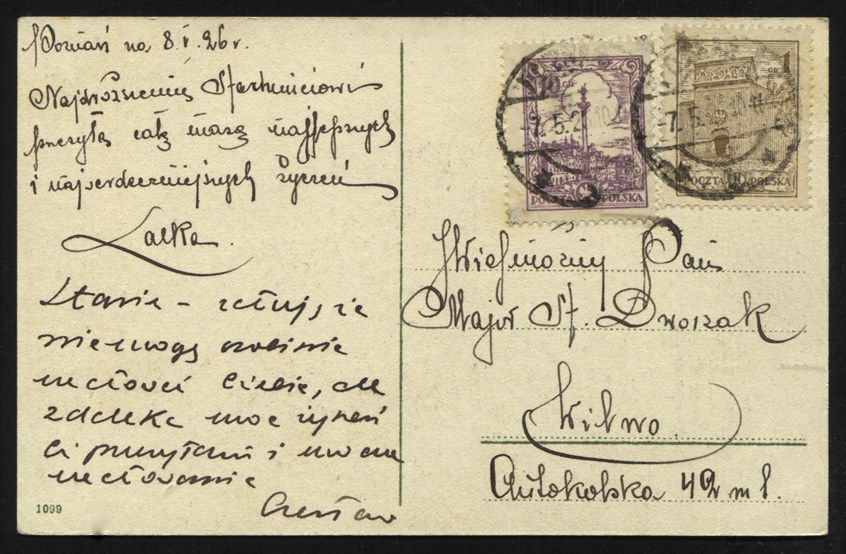 Poznań na 8.V.26r.
Najdroższemu Stachniciowi
przesyła całą masę najlepszych
i najserdeczniejszych życzeń
Lalka.
Stasiu – żałuję, że
nie mogę osobiście
ucałować Ciebie, ale
z daleka moc życzeń
Ci przesyłam i
ucałowania
Czesław
1099
10
7.5.2
7.5.
GR 1
POCZTA POLSKA
POCZTA POLSKA
Wielmożny Pan
Major St. Dworzak
Wilno.
Antokolska 42 m 1.